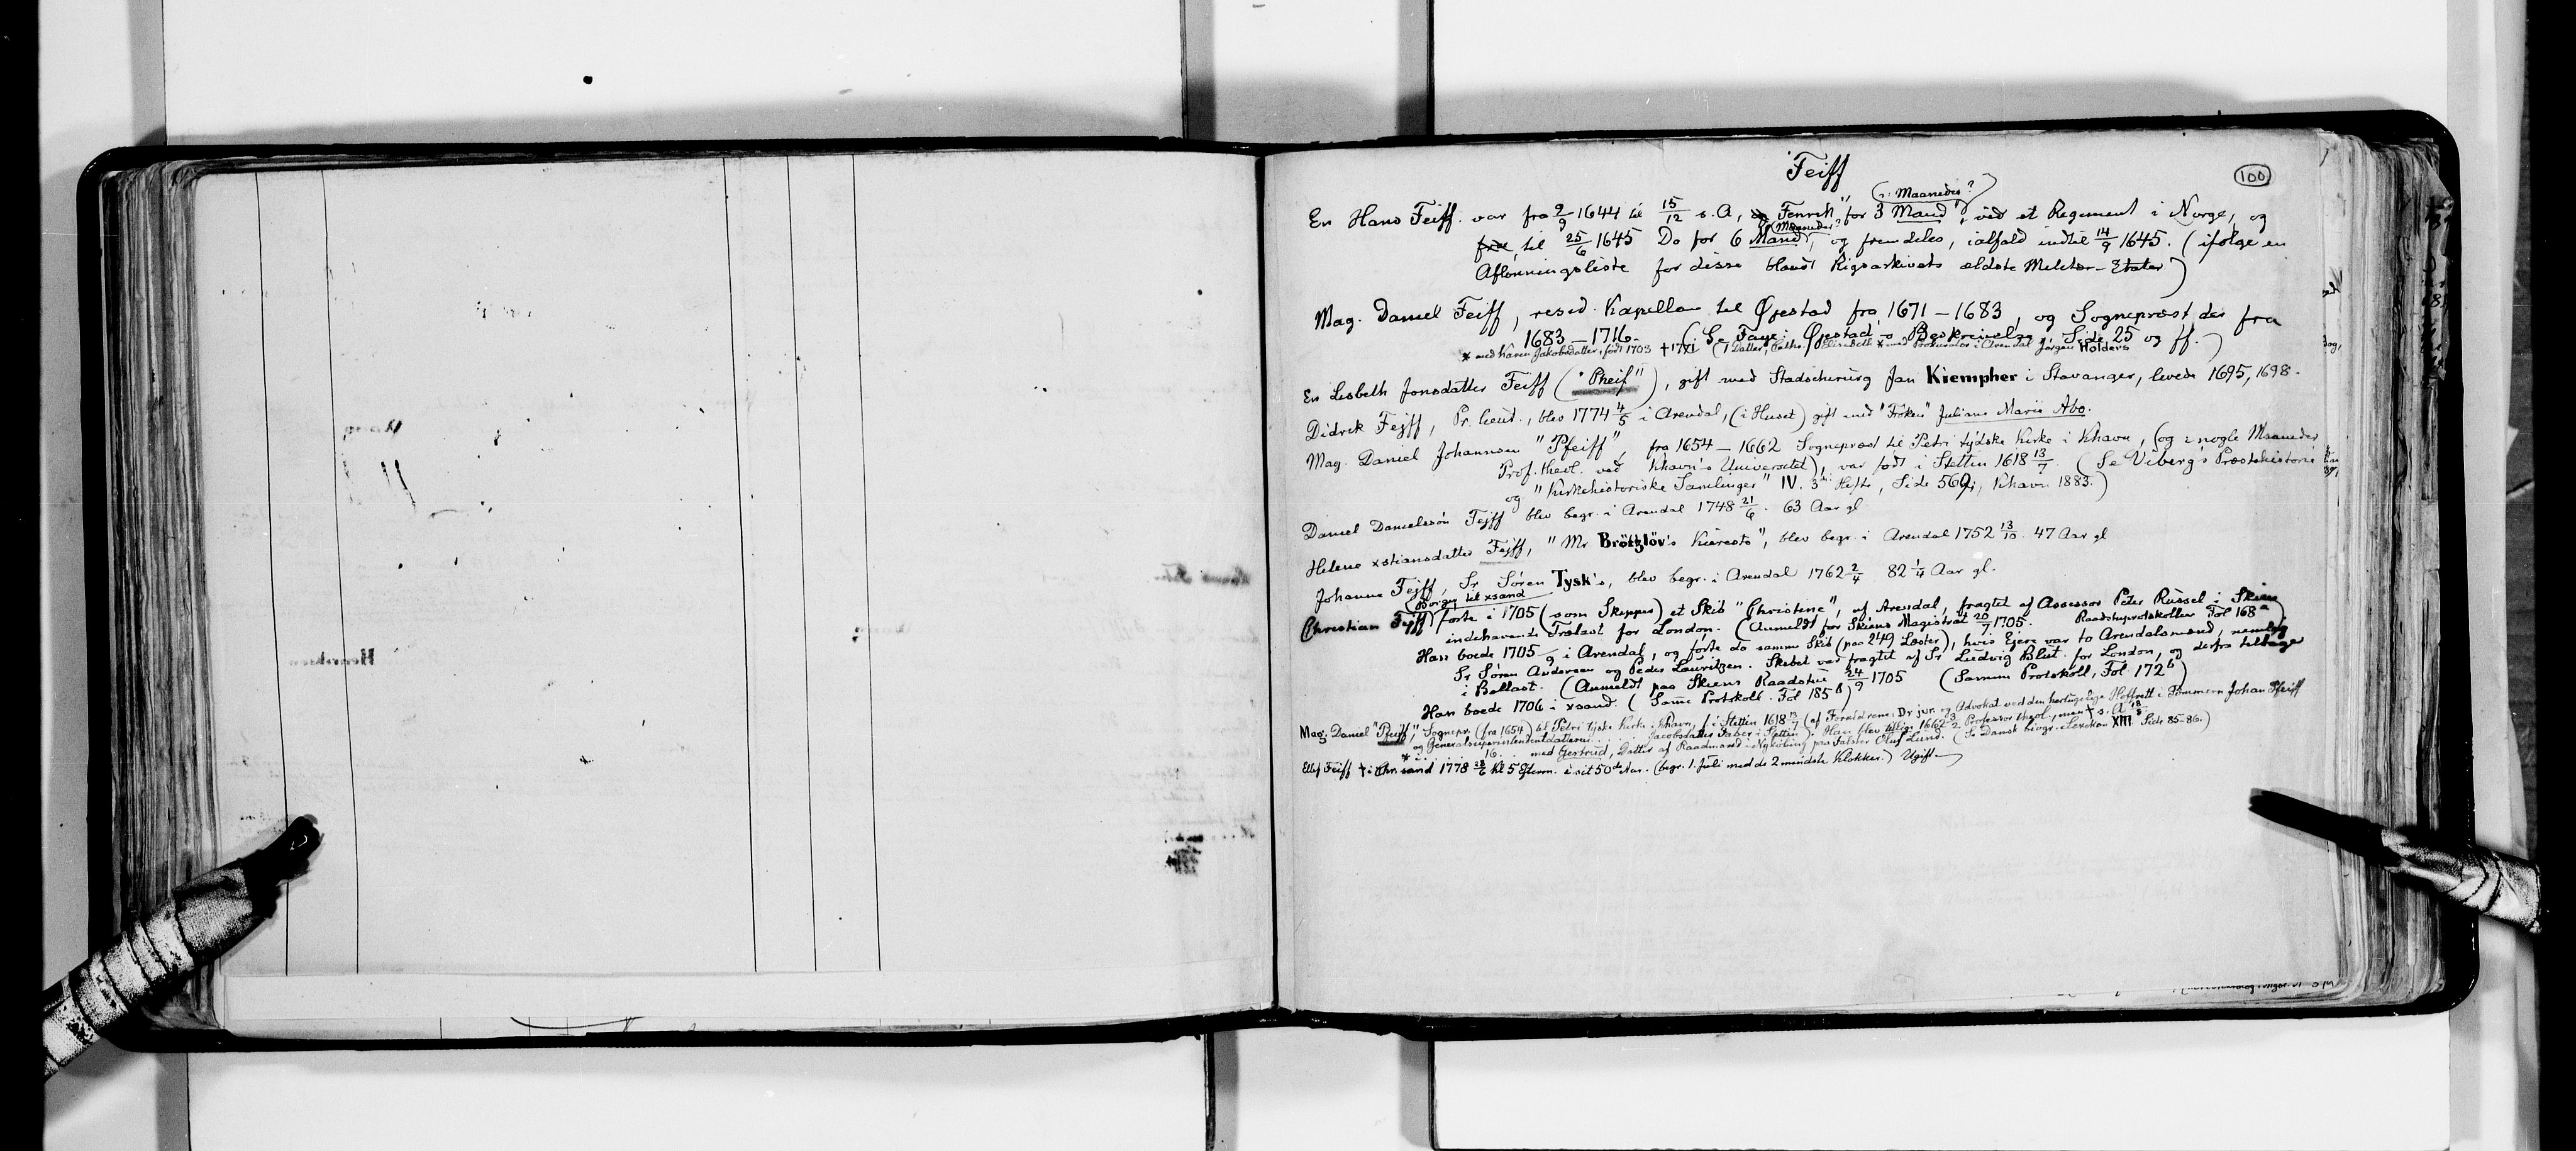 Feiff
100
(: Maaneder?)
En Hans Feiff var fra 9/9 1644 til 15/12 s. A, Fenrik "for 3 Mand", ved et Regiment i Norge, og
(Maaneder?)
fra til 25/6 1645 Do for 6 Mand, og fremdeles, ialfald indtil 14/9 1645. (ifølge en
Aflønningsliste for disse blandt Rigsarkivets ældste Militær-Etater)
Mag. Daniel Feiff, resid. Kapellan til Øjestad fra 1671 – 1683, og Sogneprest der fra
1683 – 1716. (Se Faye: Øjestad's Beskrivelse, Side 25 og ff.)
* med Karen Jakobsdatter, født 1703 † 1771 (1 Datter, Cathr. Elisabeth x med Prokurator i Arendal Jørgen Holders
En Lisbeth Jonsdatter Feiff ("Pheif"), gift med Stadschirurg Jan Kiempher i Stavanger, levede 1695, 1698.
Didrik Fejff, Pr. lieut., blev 1774 4/5 i Arendal, (i Huset) gift med "Frøken" Juliane Marie Abo.
Mag. Daniel Johannsen "Pfeiff", fra 1654 – 1662 Sogneprest til Petri tydske Kirke i Khavn, (og i nogle Maaneder
Prof. theol. ved Khavn's Universitet), var født i Stettin 1618 13/7. (Se Viberg's Præstehistorie
og "Kirkehistoriske Samlinger" IV. 3die Hefte, Side 569, Khavn 1883.)
Daniel Danielssøn Fejff blev begr. i Arendal 1748 21/6. 63 Aar gl
Helene xstiansdatter Fejff, "Mr Bröttzlöv's Kiæreste", blev begr. i Arendal 1752 13/10. 47 Aar gl
Johanne Fejff, Sr Søren Tysk's, blev begr. i Arendal 1762 2/4 82 1/4 Aar gl.
(Borger til xsand
Christian Fejff) førte i 1705 (som Skipper) et Skib "Christine", af Arendal, fragtet af Assessor Peter Russel i Skien
indehavende Trælast for London. (Anmeldt for Skiens Magistrat 20/7 1705. Raadstueprotokollen Fol 168 a)
Han boede 1705 /9 i Arendal, og førte da samme Skib (paa 249 Læster), hvis Ejere var to Arendalsmænd, nemlig
Sr Søren Andersen og Peder Lauritzen. Skibet var fragtet af Sr Ludvig Blut for London, og derfra tilbage
i Ballast. (Anmeldt paa Skiens Raadstue 24/9 1705 (Samme Protokoll, Fol 172 b)
Han boede 1706 i xsand. (Same Protokoll. Fol 185 b)
Mag. Daniel "Pfeiff", Sognepr. (fra 1654) til Petri tyske Kirke i Khavn, f i Stettin 1618 13/7 (af Forældrene: Dr jur. og Advokat ved den hertugelige Hofret i Pommern Johan Pfeiff
og Generalsuperintendentdatteren Jacobsdatter Faber i Stettin). Han blev tillige 1662 Professor theol., men † s. A 18/8
* 16 med Gertrud, Datter af Raadmand i Nykøbing paa Falster Oluf Lund. (Se Dansk biogr. Lexikon XIII Side 85-86.)
Ellef Feiff † i Chr. sand 1778 28/6 Kl 5 Efterm. i sit 50de Aar. (begr. 1. Juli med de 2 mindste Klokker.) Ugift.